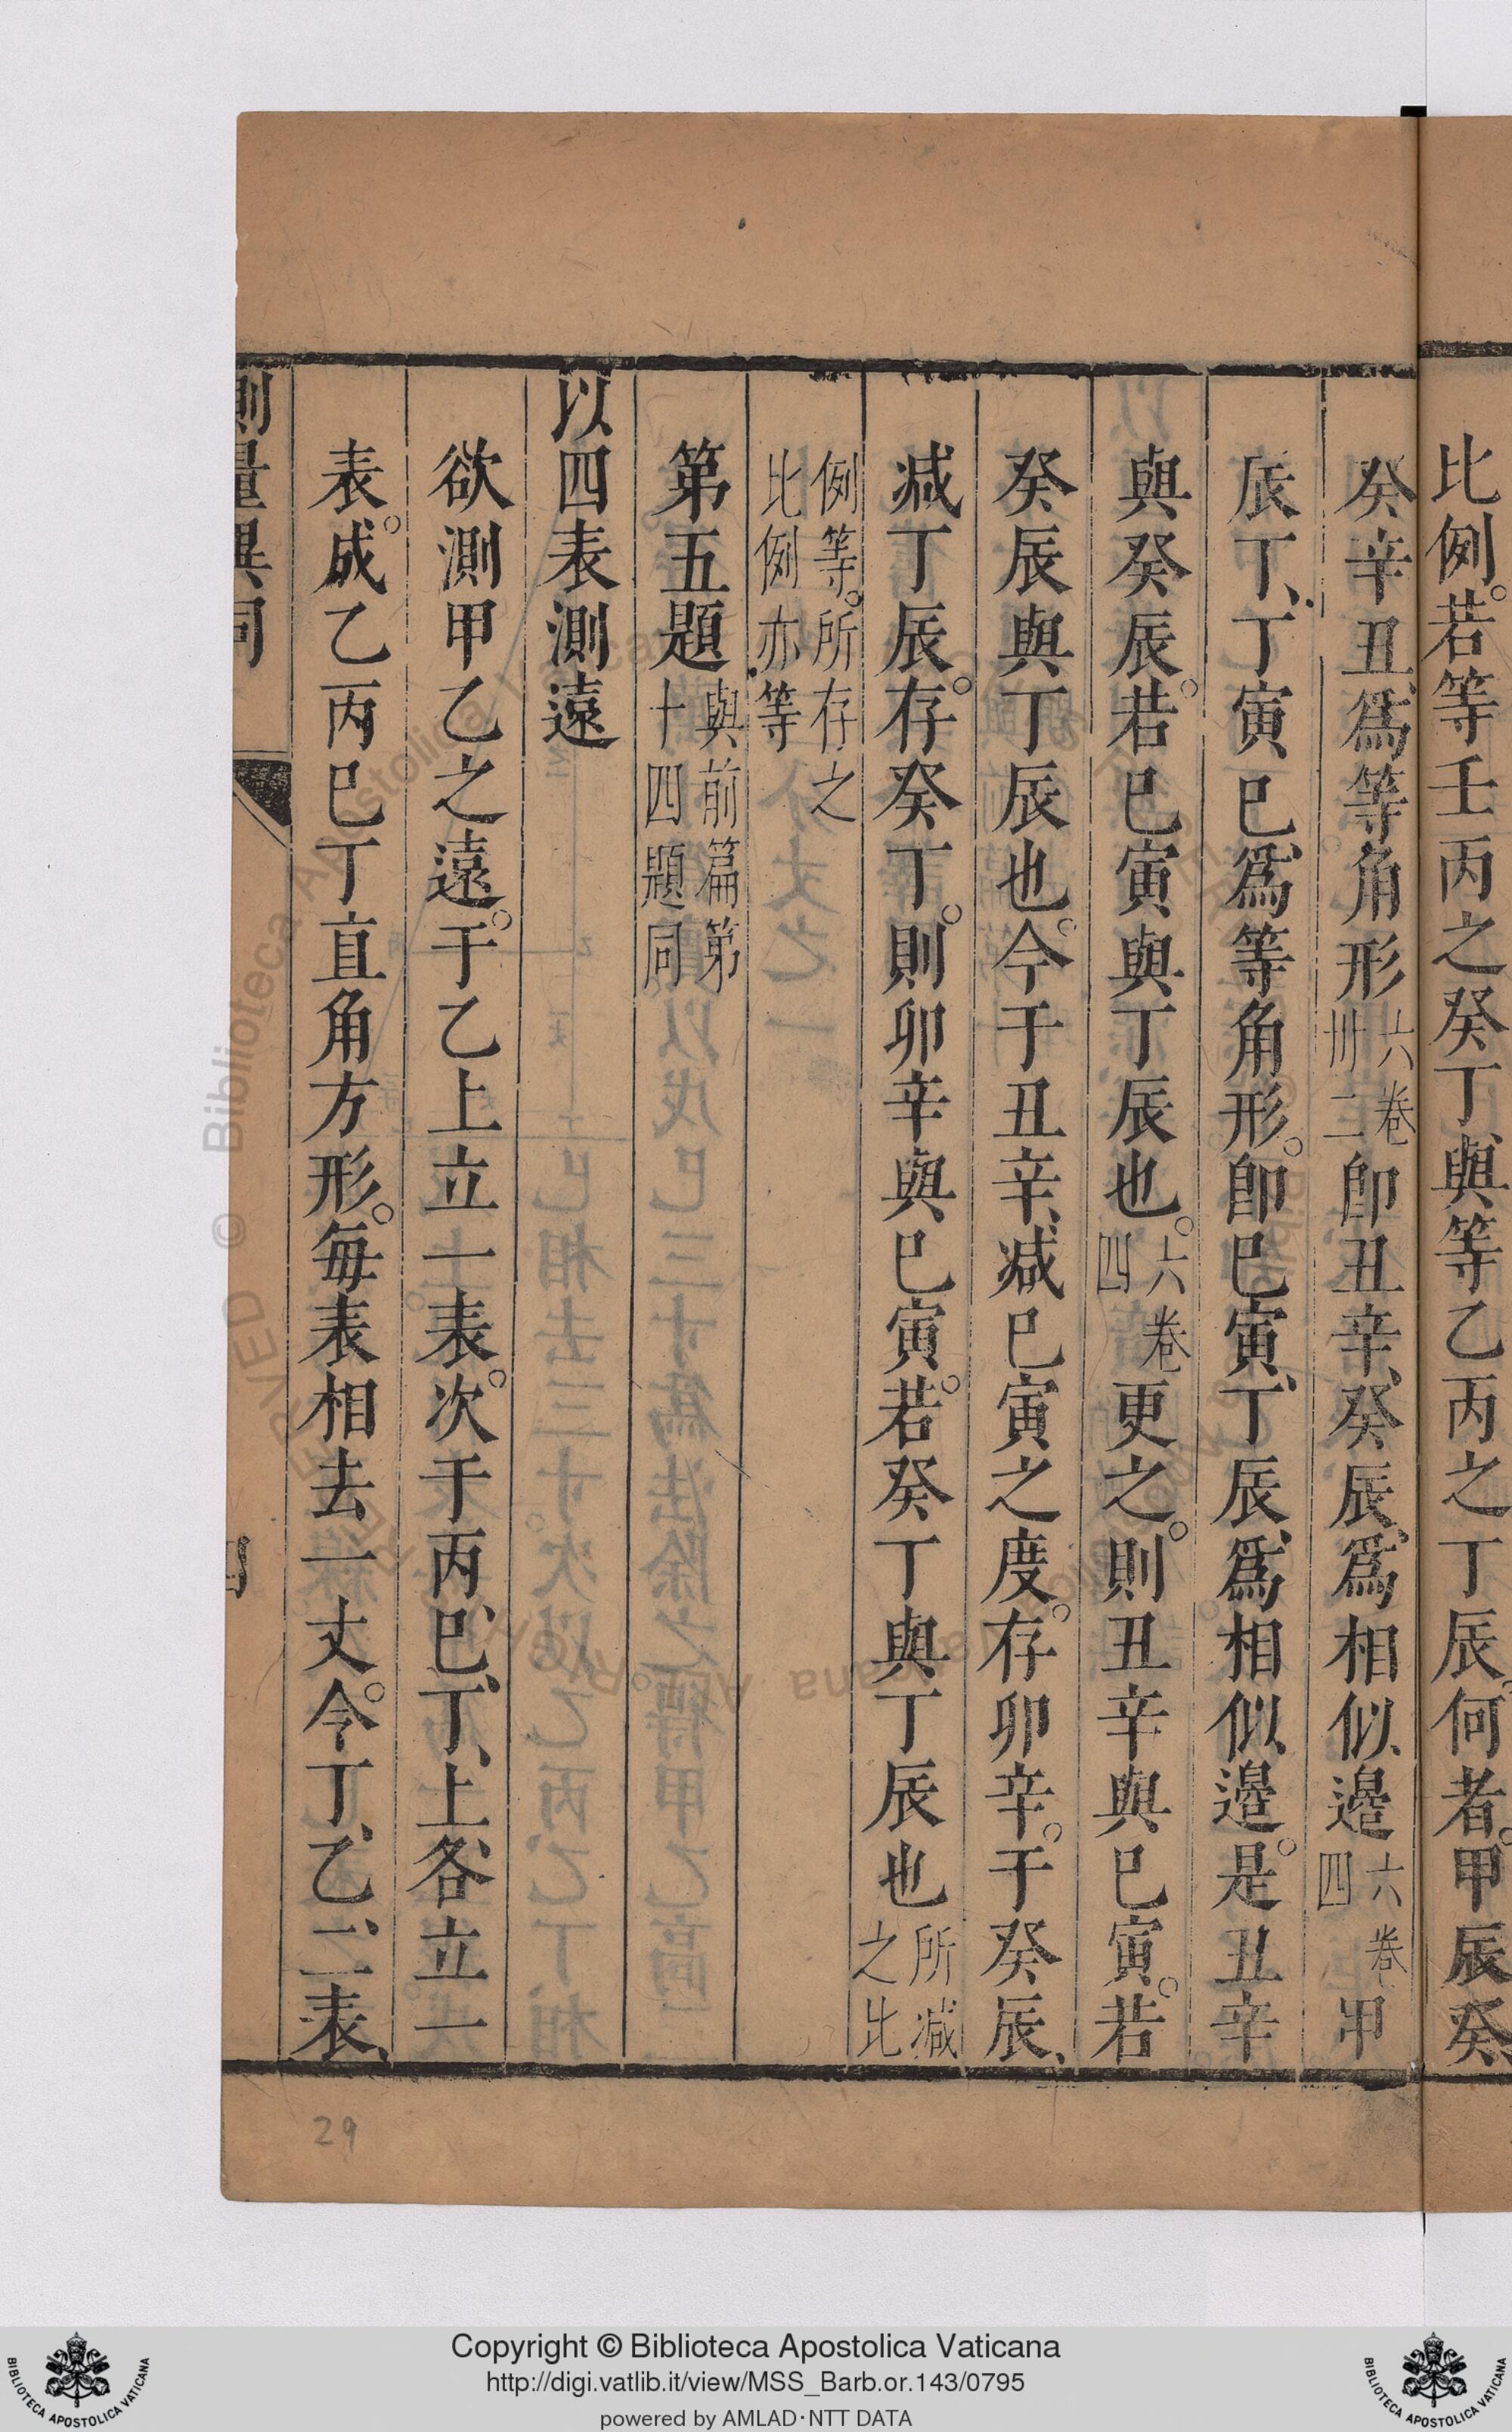 比例。若等壬丙之癸丁、與等乙丙之丁辰。何者。甲辰癸、
癸辛丑、爲等角形六卷卅二卽丑辛、癸辰、爲相似邊六卷四甲
辰丁、丁寅巳、爲等角形。卽巳寅、丁辰、爲相似邊。是丑辛
與癸辰。若巳寅與丁辰也。六卷四更之。則丑辛與巳寅。若
癸辰與丁辰也。今于丑辛、减巳寅之度。存卯辛。于癸辰、
减丁辰。存癸丁。則卯辛與巳寅。若癸丁與丁辰也所减之比
例等。所存之比例亦等
第五題與前篇第十四題同
以四表測遠
欲測甲乙之遠。于乙上立一表。次于丙、巳、丁、上各立一
表。成乙丙巳丁直角方形。每表相去一丈。今丁、乙、二表、
測量異同
四
29
© Biblioteca Apostolica Vaticana
Copyright © Biblioteca Apostolica Vaticana
http://digi.vatlib.it/view/MSS_Barb.or.143/0795
powered by AMLAD·NTT DATA
BIBLIOTECA APOSTOLICA VATICANA
BIBLIOTECA APOSTOLICA VATICANA